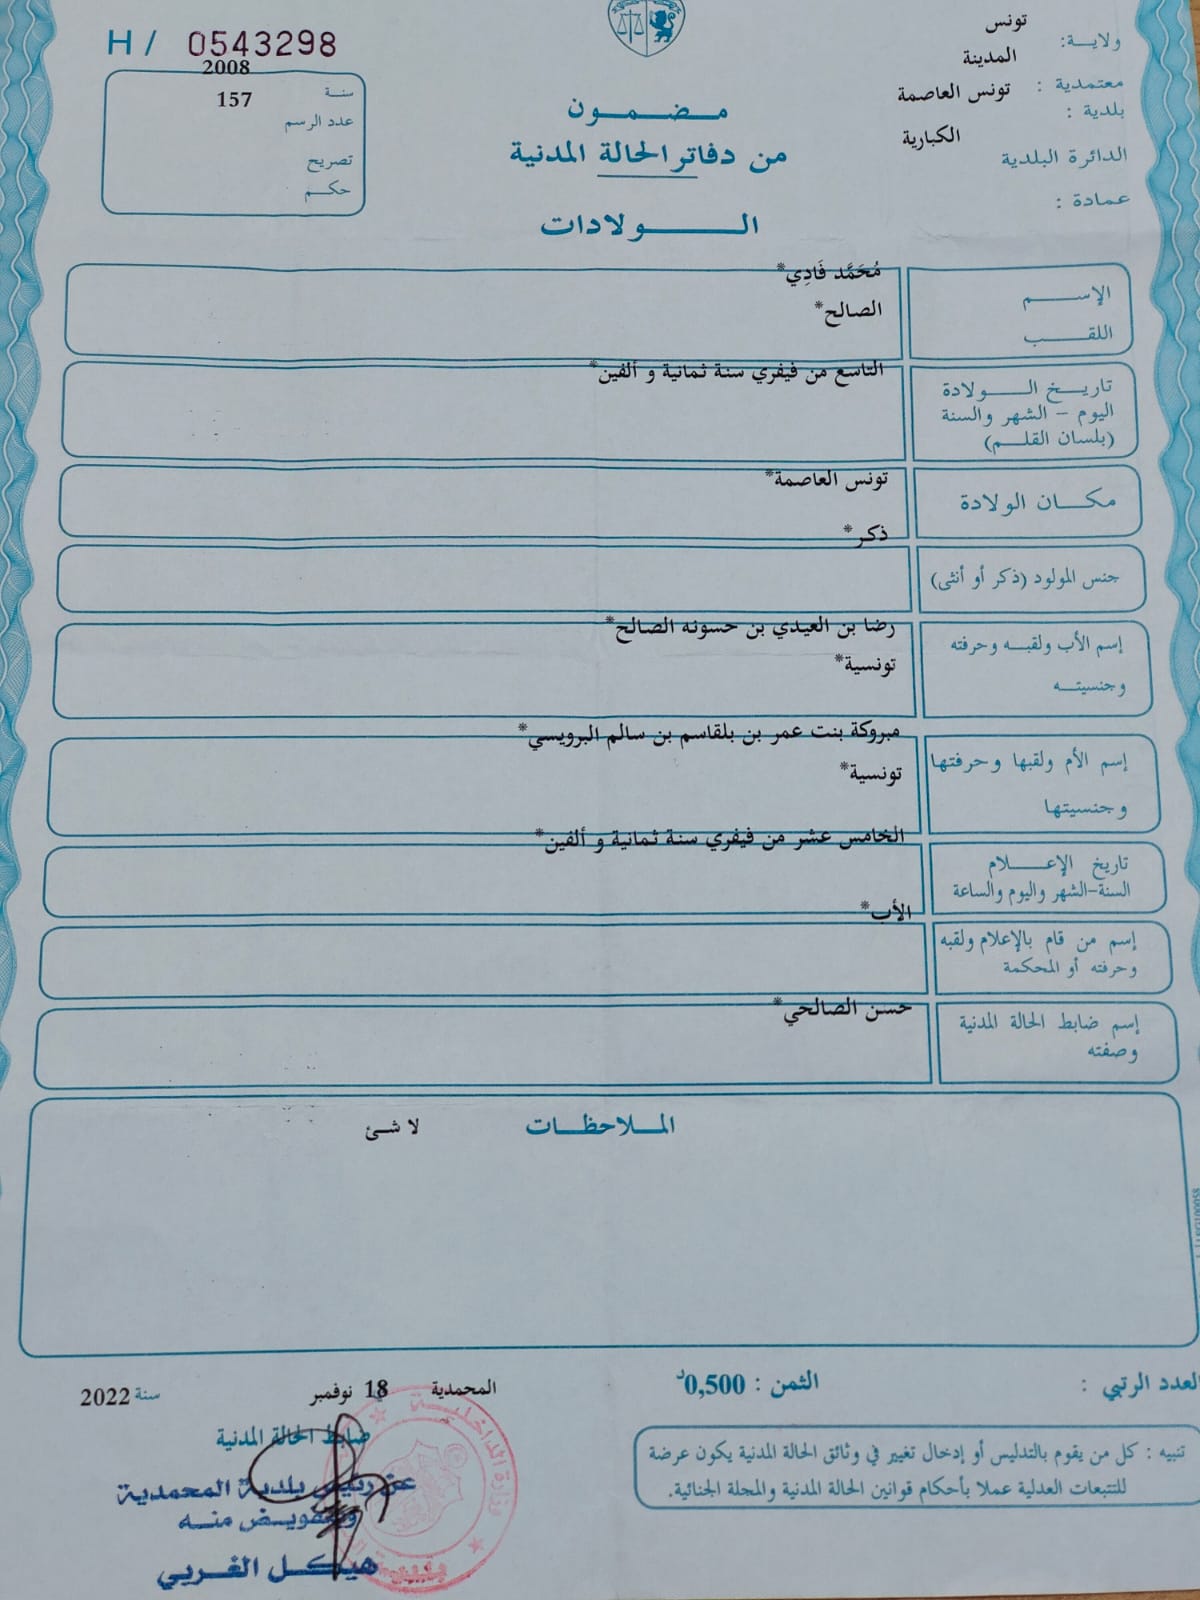 H / 0543298
ولاية: تونس
معتمدية : المدينة
بلدية : تونس العاصمة
الدائرة البلدية الكبارية
عمادة :
سنة 2008
عدد الرسم 157
تصريح
حكم
مضمون
من دفاتر الحالة المدنية
الولادات
الإسم مُحَمَّد فَادِي*
اللقب الصالح*
تاريخ الولادة
اليوم - الشهر والسنة
(بلسان القلم)
التاسع من فيفري سنة ثمانية و ألفين*
مكان الولادة تونس العاصمة*
جنس المولود (ذكر أو أنثى) ذكر*
إسم الأب ولقبه وحرفته
وجنسيته
رضا بن العيدي بن حسونه الصالح*
تونسية*
إسم الأم ولقبها وحرفتها
وجنسيتها
مبروكة بنت عمر بن بلقاسم بن سالم البرويسي*
تونسية*
تاريخ الإعلام
السنة-الشهر واليوم والساعة
الخامس عشر من فيفري سنة ثمانية و ألفين*
إسم من قام بالإعلام ولقبه
وحرفته أو المحكمة
الأب*
إسم ضابط الحالة المدنية
وصفته
حسن الصالحي*
الملاحظات
لا شئ
العدد الرتبي :
الثمن : 0,500د
المحمدية 18 نوفمبر سنة 2022
ضابط الحالة المدنية
عن رئيس بلدية المحمدية
وبتفويض منه
هيكل الغربي
وزارة الداخلية
بلدية
تنبيه : كل من يقوم بالتدليس أو إدخال تغيير في وثائق الحالة المدنية يكون عرضة
للتتبعات العدلية عملا بأحكام قوانين الحالة المدنية والمجلة الجنائية.